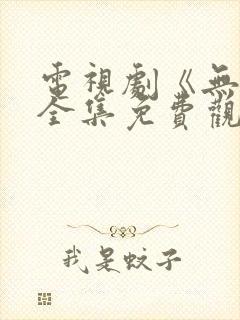 電視劇《無
全集免費觀
我是蚊子